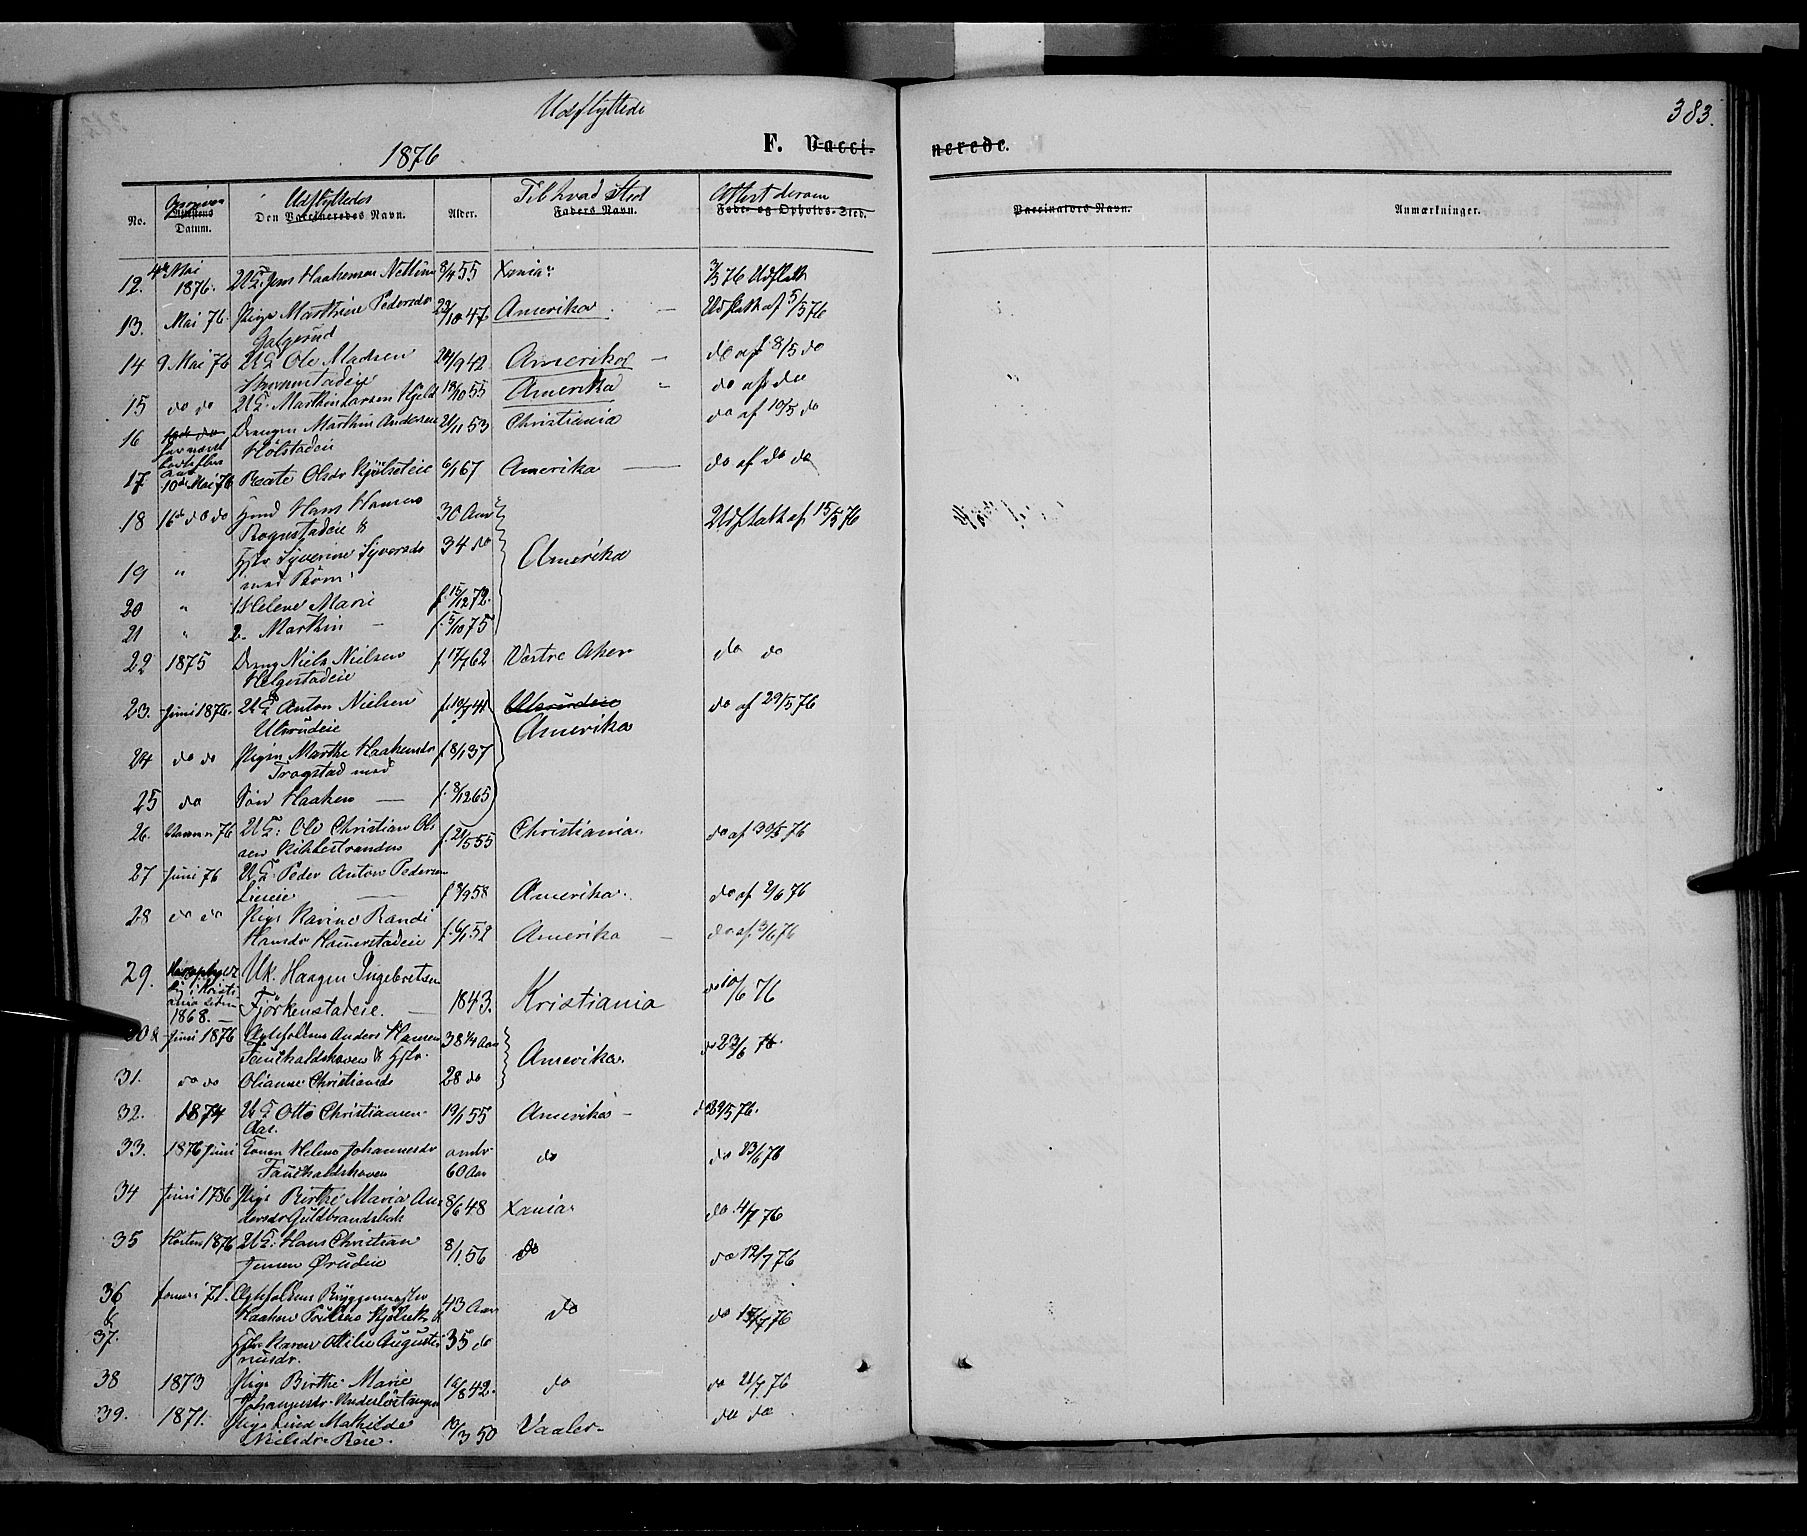 Udflyttede
383.
1876
F. Vacci- nerede.
Udflyttedes Til hvad Sted Attest derom
No. Datum. Den Vaccineredes Navn. Alder. Faders Navn. Føde- og Opholds-Sted. Vaccinators Navn. Anmærkninger.
12. 4de Mai 1876. Jens Haakensen 8/4 55 Xania 76 Udflatt
13. Mai 76. Pige Marthine Pedersdr 22/10 47 Amerika. Udflatt af 5/5 76
14 9 Mai 76 Ole Madsen 24/9 42. Amerika do af 8/5 do
15 do do Marthin Larsen 18/10 55 Amerika do af do
16 Drengen Marthin Andersen 21/11 53 Christiania do af 10/5 do
Holstadeie
17 10de Mai 76 Beate Olsdr Kjølseteie 6/1 67 Amerika do af do do
18 16de do do Hans Hansen 30 Aar Udflatt af 15/5 76
Rognstadeie &
19 " Hstr Syverine Syversdr 34 do Amerika
med Børn:
20 " 1 Helene Marie f. 15/12 72.
21 " 2. Marthin f. 5/10 75
22 1875 Dreng Niels Nielsen f 17/7 62 Vestre Aker do do
Helgestadeie
23. Juni 1876. Anton Nielsen f. 10/7 41 Ulsrudeie do af 29/5 76
Ulsrudeie Amerika
24 do do Pigen Marthe Haakensdr f 8/1 37
Trogstad med
25 do Søn Haaken f. 8/12 65
26. 76 Ole Christian Ol- f. 21/5 55 Christiania. do af 30/5 76
sen
27 Juni 76 Peder Anton Pedersen
Lieeie f 8/9 58 Amerika. do af 2/6 76
28 do do Pige Karine Randi
Hansdr f. 6/1 52 Amerika do af. 3/6 76
29. Uk. Haagen Ingebretsen do 10/6 76
sig i Kristi-
ania siden
1868. Fjørkenstadeie. 1843. Kristiania
30 & Juni 1876 Anders Hansen 38 1/4 Aar Amerika. do 23/6 76.
Fauchaldshoven & Hstr.
31. do do Oliane Christiansdr 28 do
32. 1874 Otto Christiansen 19/1 55 Amerika do 29/5 76.
Aas.
33. 1876 Juni Konen Helene Johannesdr omtr do do 23/6 76
Fauchaldshoven 60 Aar
34 Juni 1786 Pige Birthe Maria An- 8/6 48 Xania do. 4/7 76
dersdr Guldbrandsbak
35 Høsten 1876 Hans Christian 8/1. 56 do do 12/7 76
Jensen Ørudeie
36 71. Bryggemester 43 Aar do do 76
& Haaken &
37. Hstr Karen Otilie Augusti- 35 do
nusdr.
38 1873 Pige Birthe Marie 16/8 42. do do 21/7 76
Johannesdr
39. 1871. Pige Lina Mathilde 10/3 50 Vaaler do do
Nielsdr